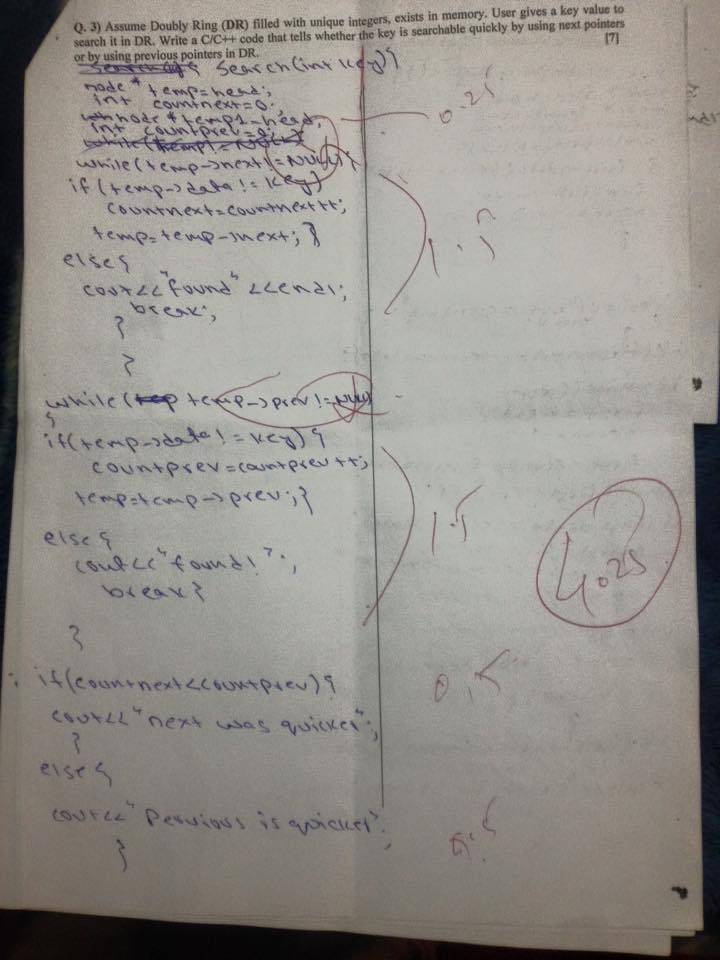 Q. 3) Assume Doubly Ring (DR) filled with unique integers, exists in memory. User gives a key value to
search it in DR. Write a C/C++ code that tells whether the key is searchable quickly by using next pointers
or by using previous pointers in DR. [7]
Search(int key){
node * temp=head;
int countnext=0;
node * temp1=head;
int countprev=0;
0.25
while(temp->next!=NULL){
if(temp->data!=key){
countnext=countnext++;
temp=temp->next;}
1.5
else{
cout<<"found"<<endl;
break;
}
}
while( temp->prev!=NULL)
{
if(temp->data!=key){
countprev=countprev++;
temp=temp->prev;}
1.5
else{
cout<<"found!";
break}
4.25
}
if(countnext<countprev){
0.5
cout<<"next was quicker";
}
else{
cout<<"Pervious is quicker";
0.5
}